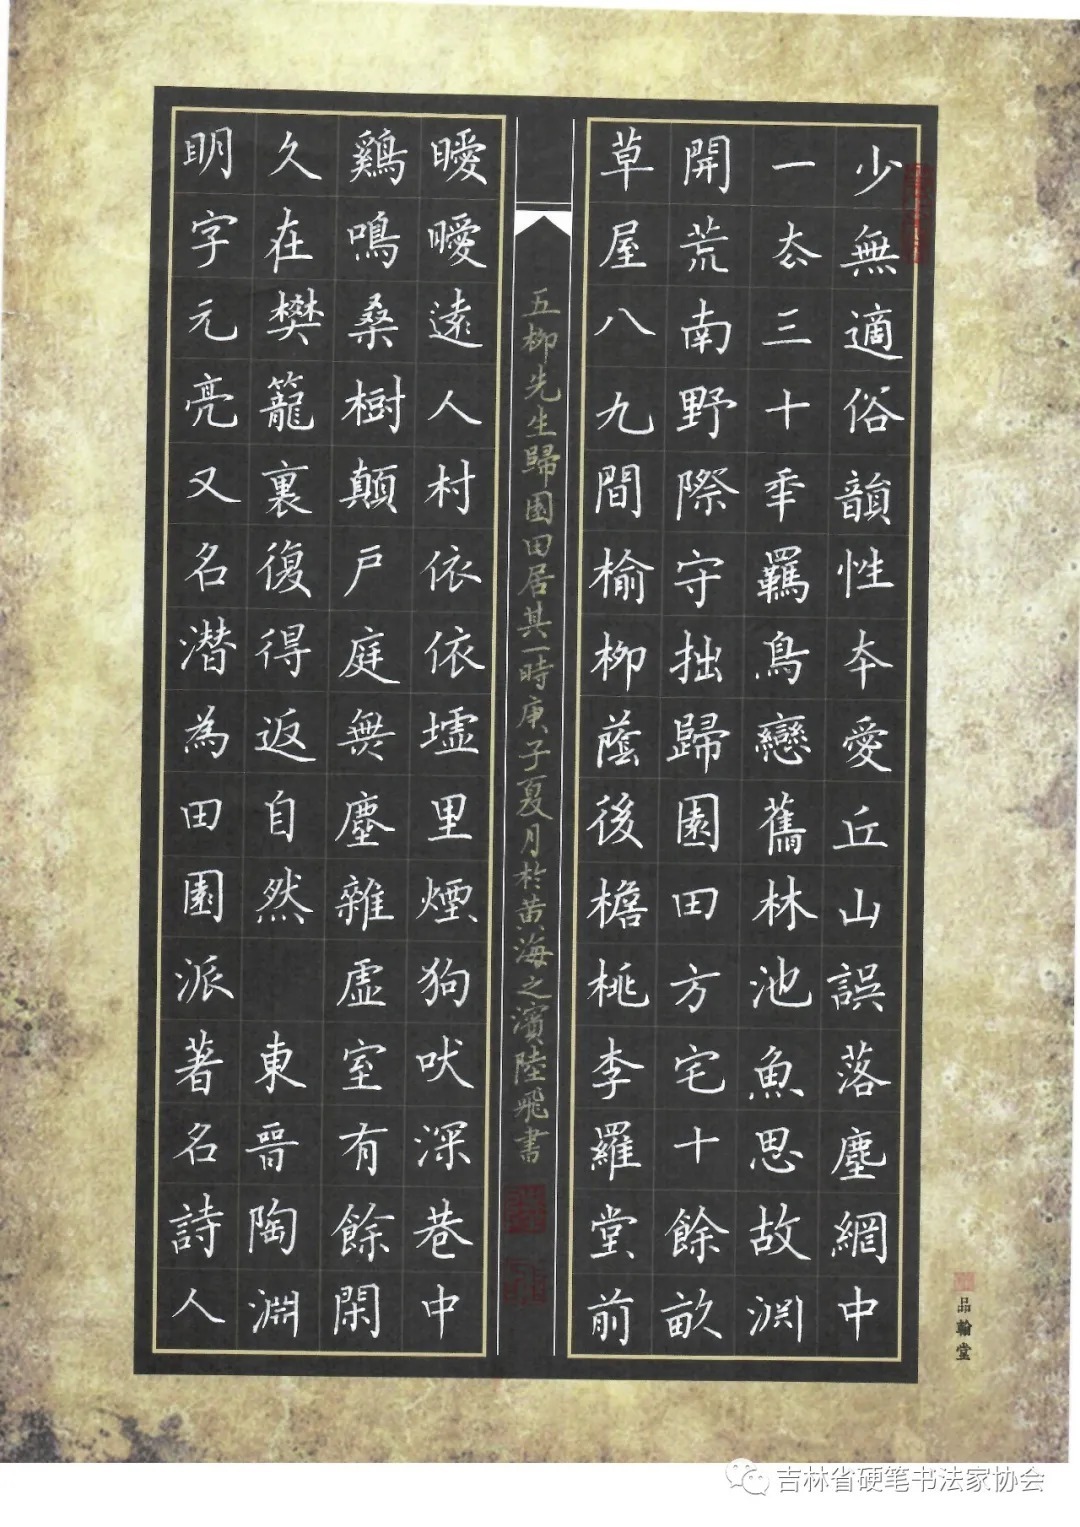 少無適俗韻性本愛丘山誤落塵網中
一去三十年羈鳥戀舊林池魚思故淵
開荒南野際守拙歸園田方宅十餘畝
草屋八九間榆柳蔭後檐桃李羅堂前
五柳先生歸園田居其一時庚子夏月於黃海之濱陸飛書
曖曖遠人村依依墟里煙狗吠深巷中
鷄鳴桑樹顛戶庭無塵雜虛室有餘閑
久在樊籠裏復得返自然 東晉陶淵
明字元亮又名潛為田園派著名詩人
品翰堂
吉林省硬笔书法家协会